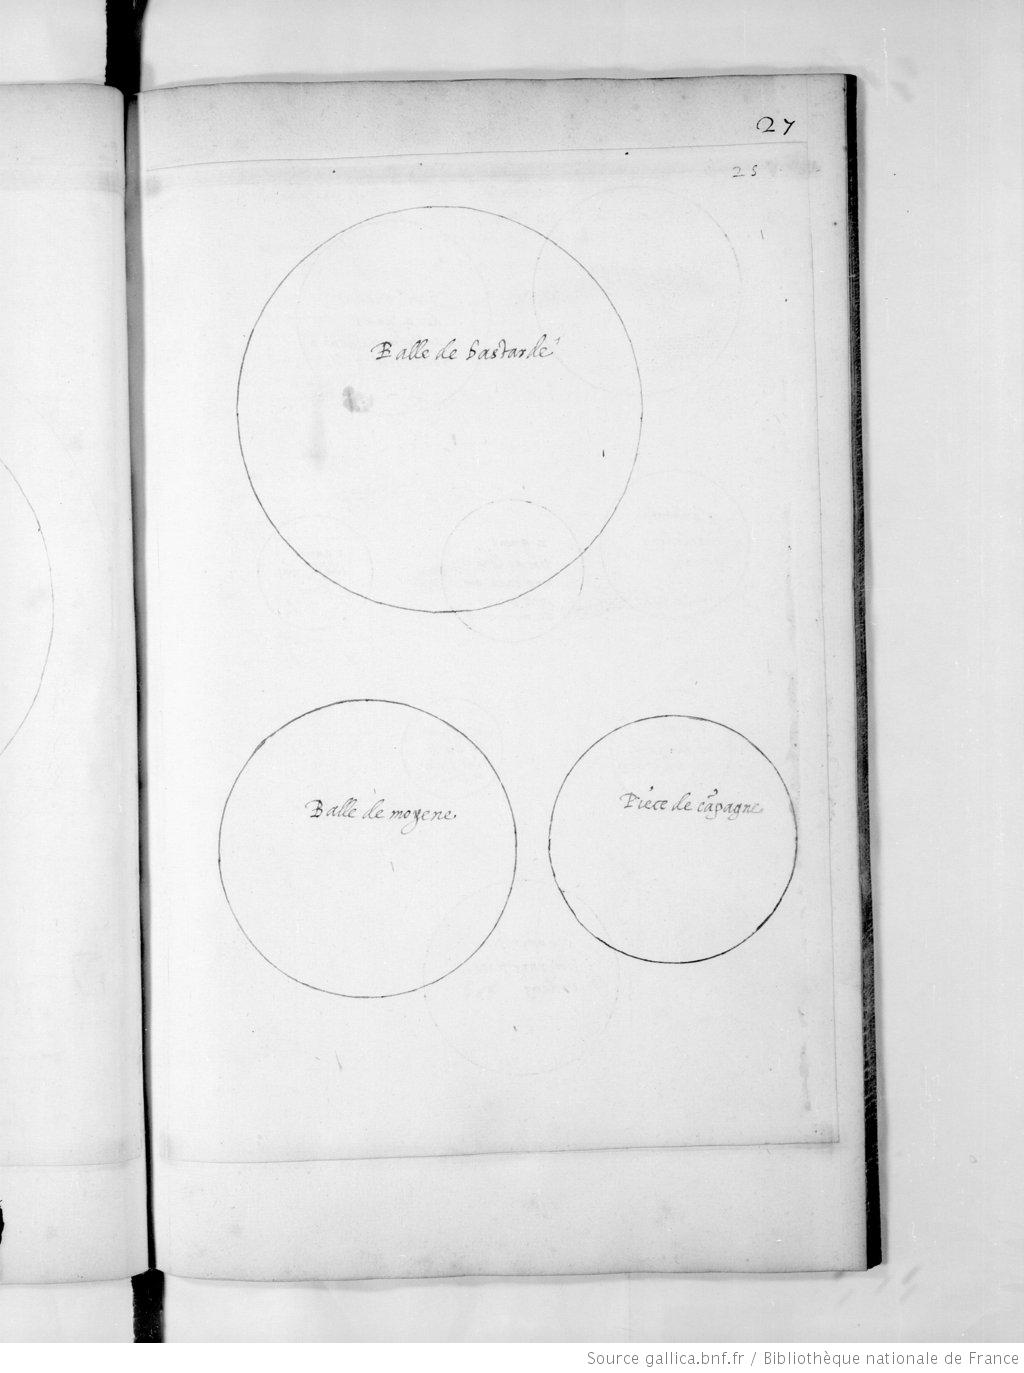 27
25
Balle de bastarde
Balle de moyene
Piece de cãpagne
Source gallica.bnf.fr / Bibliothèque nationale de France